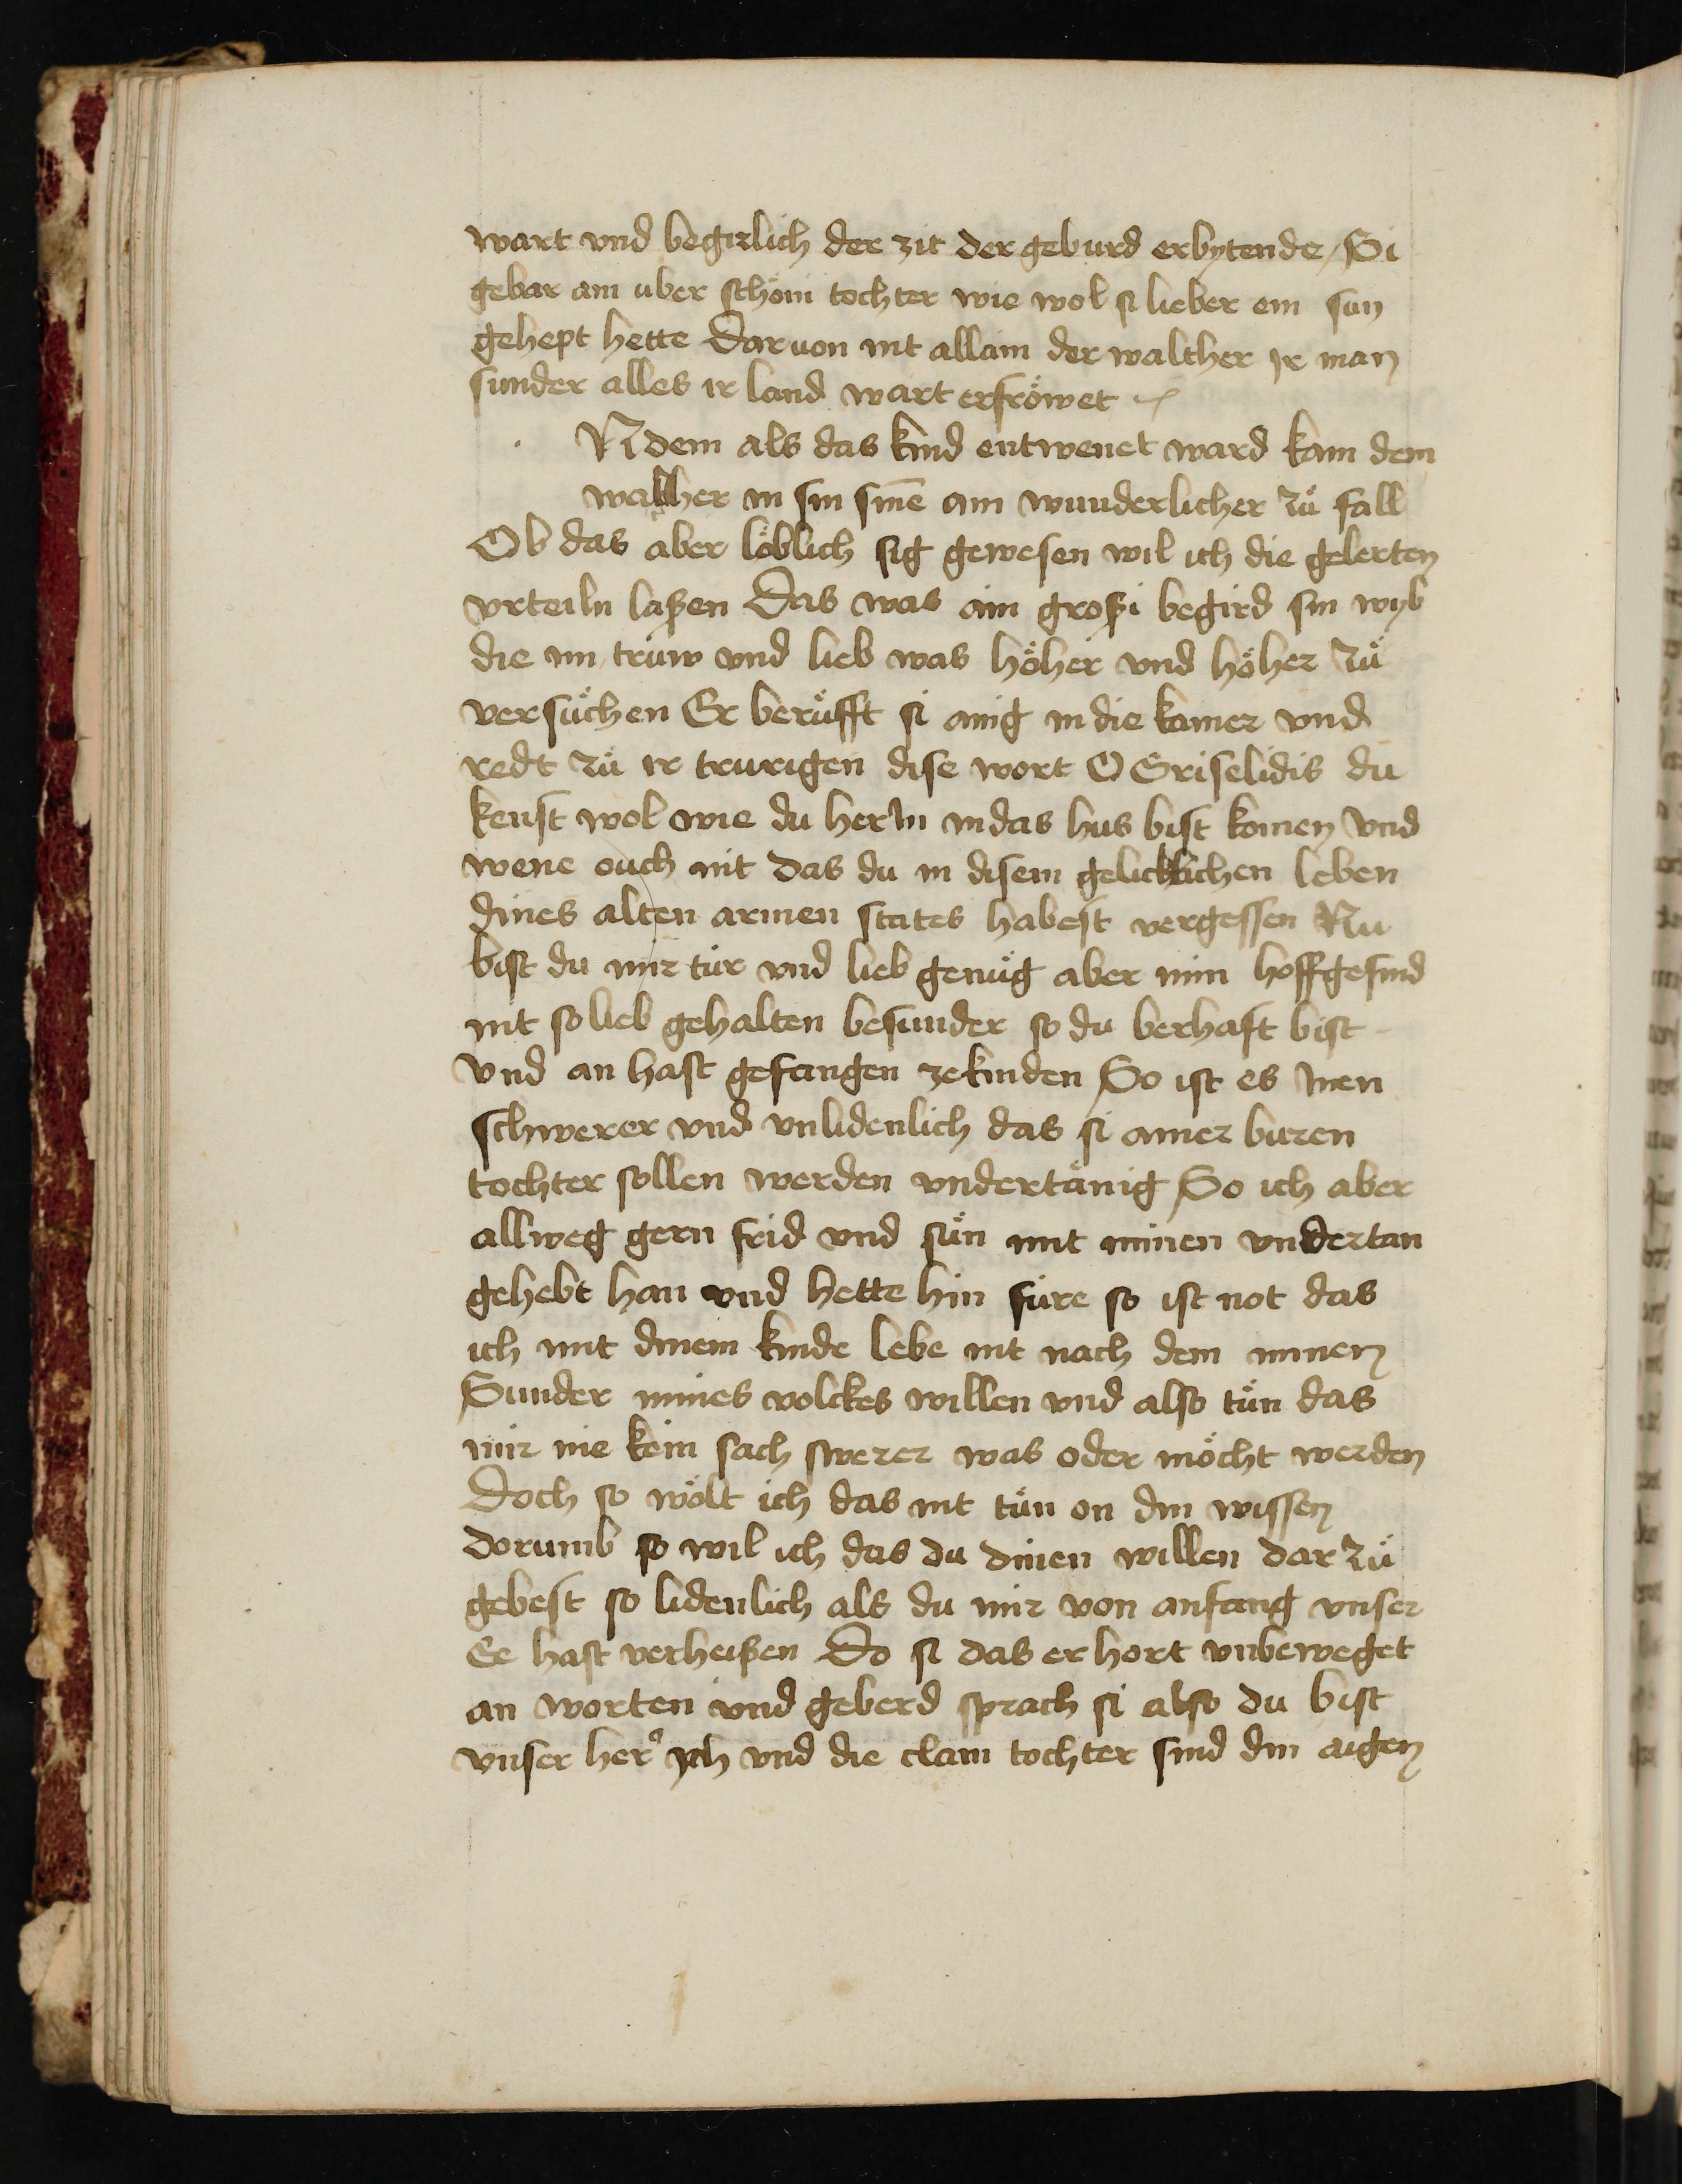 wart vnd begirlich der zit der geburd erbytende / Si
gebar ain uber schöni tochter wie wol si lieber ein sun
gehept hette Daruon nit allain der walther jr man
sunder alles ir land wart erfröwet
N dem als das kind entwenet ward kam dem
walther in sin sine ain wunderlicher zů fall
Ob das aber löblich sig gewesen wil ich die gelerten
vrteiln laßen Das was ain großi begird sin wyb
die im trüw vnd lieb was höher vnd höher zů
versůchen Er berůfft si ainig in die kamer vnd
redt zů ir trurigen dise wort O Griselidis du
kenst wol wie du her in in das hus bist komen Vnd
wene ouch nit das du in disem gelicklichen leben
dines alten armen states habest vergessen Nu
bist du mir tür vnd lieb genůg aber mim hoffgesind
nit so lieb gehalten besunder so du berhaft bist
Vnd an hast gefangen ze kinden So ist es Inen
schwerer vnd vnlidenlich das si ainer buren
tochter sollen werden vndertänig So ich aber
allweg gern frid vnd sůn mit minen vndertan
gehebt han vnd hette hin füre so ist not das
ich mit dinem kinde lebe nit nach dem minen
Sunder mines volckes willen vnd also tůn das
mir nie kein sach swerer was oder möcht werden
Doch so wölt ich das nit tůn on din wissen
dorumb so wil ich das du dinen willen dar zů
gebest so lidenlich als du mir von anfang vnser
Ee hast verheißen Do si das erhort vnbeweget
an worten vnd geberd sprach si also du bist
vnser her⁹ ych vnd die clain tochter sind din aigen